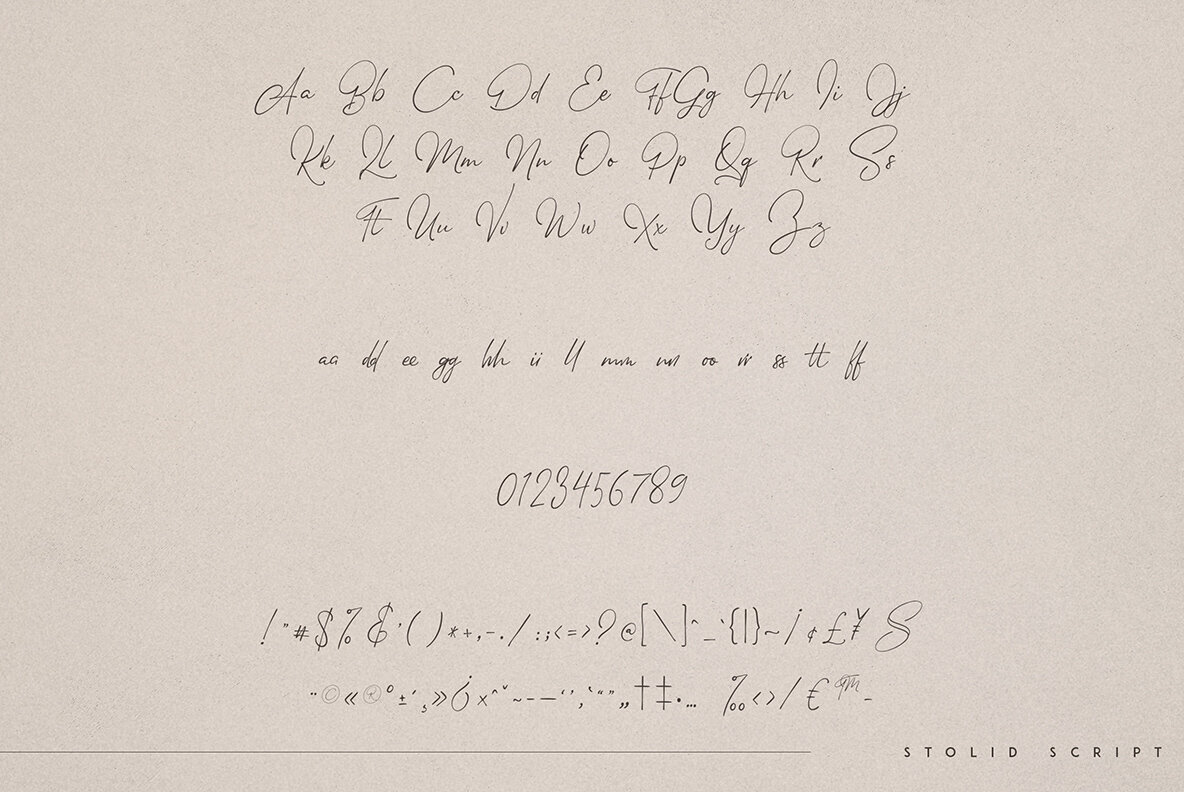 Aa Bb Cc Dd Ee Ff Gg Hh Ii Jj
Kk Ll Mm Nn Oo Pp Qq Rr Ss
Tt Uu Vv Ww Xx Yy Zz
aa dd ee gg hh ii ll mm nn oo rr ss tt ff
0123456789
!"#$%&'()*+,-./:;<=>?@[\]^_`{|}~¡¢£¥ S
¨©«®°±´¸»¿×ˆˇ~–—‘’‚‛“”„†‡•… ‰‹›⁄€™−
STOLID SCRIPT